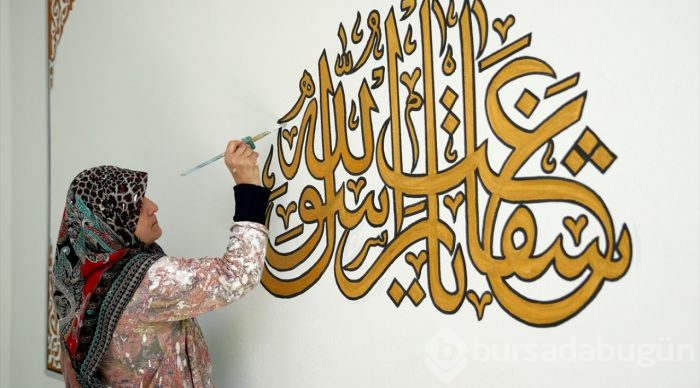 شفاعت يا رسول الله
bursadabugün